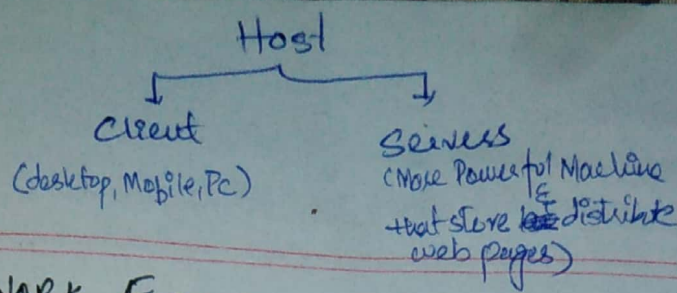 Host
Client
Servers
(desktop, Mobile, Pc)
(More Powerful Machine
that store & distribute
web pages)